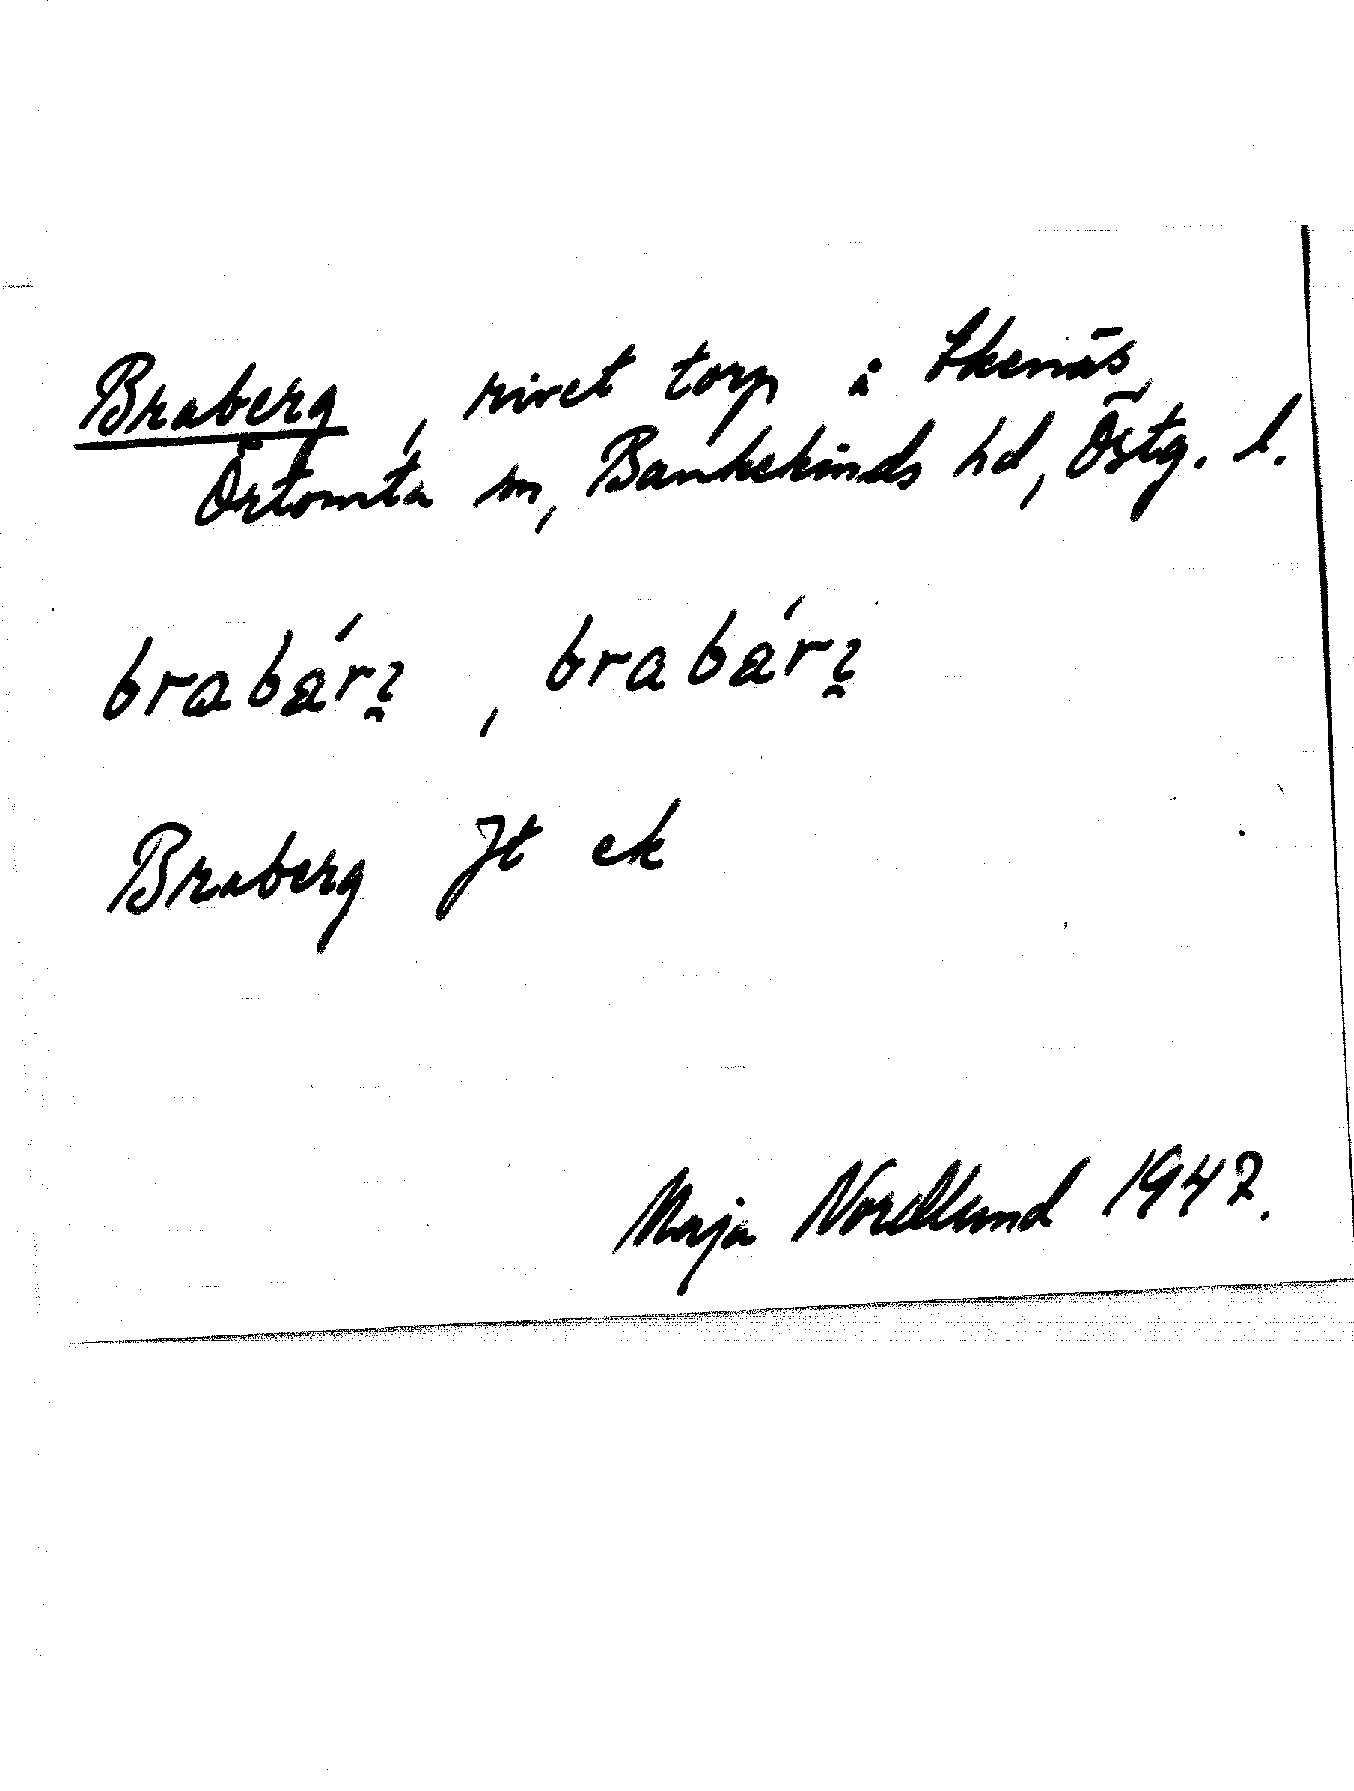 Braberg, rivet torp å Skenäs,
Örtomta sn, Bankekinds hd, Östg. l.
brabárꞔ̯, brabárꞔ̯
Braberg Jt ek
Maja Nordlund 1947.